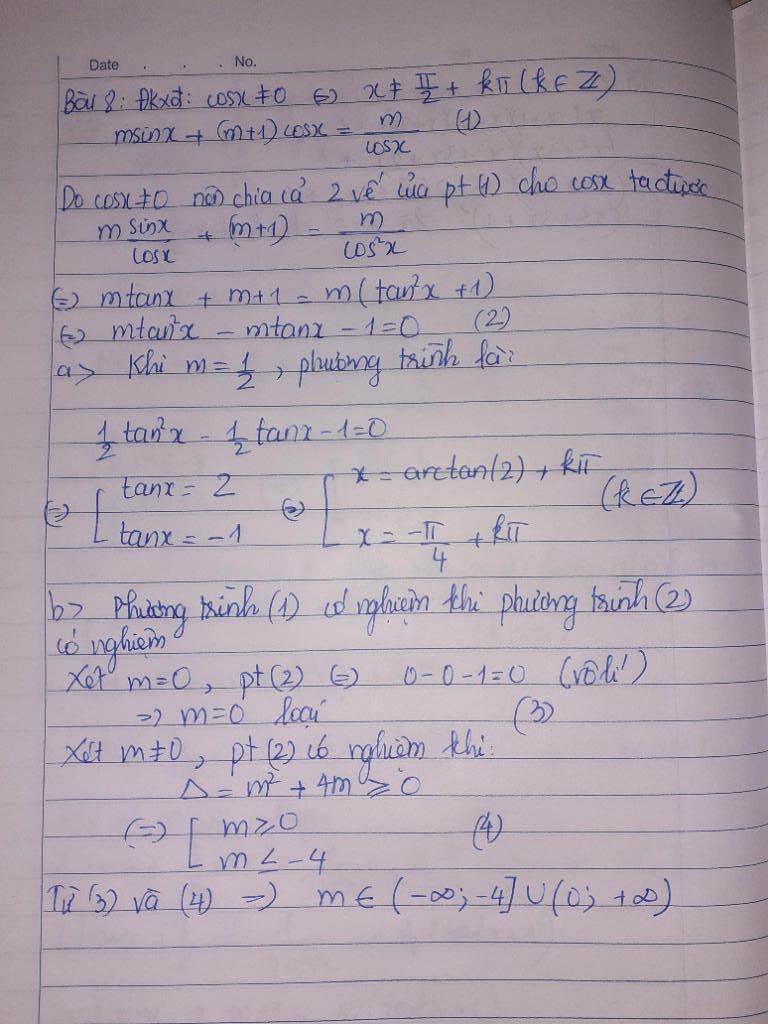 Date . . . No.
Bài 8: Đkxđ: cosx ≠ 0 ⇔ x ≠ π/2 + kπ (k ∈ ℤ)
msinx + (m+1) cosx = m/cosx (1)
Do cosx ≠ 0 nên chia cả 2 vế của pt (1) cho cosx ta được
m sinx/cosx + (m+1) = m/cos²x
⇔ mtanx + m+1 = m(tan²x +1)
⇔ mtan²x - mtanx - 1 = 0 (2)
a> Khi m = 1/2, phương trình là:
1/2 tan²x - 1/2 tanx - 1 = 0
⇔ [ tanx = 2 ⇔ [ x = arctan(2) + kπ (k ∈ ℤ)
tanx = -1 x = -π/4 + kπ
b> Phương trình (1) có nghiệm khi phương trình (2)
có nghiệm
Xét m=0, pt (2) ⇔ 0-0-1=0 (vô lí)
=> m=0 loại (3)
Xét m≠0, pt (2) có nghiệm khi:
Δ = m² + 4m ≥ 0
⇔ [ m ≥ 0 (4)
m ≤ -4
Từ (3) và (4) => m ∈ (-∞; -4] ∪ (0; +∞)